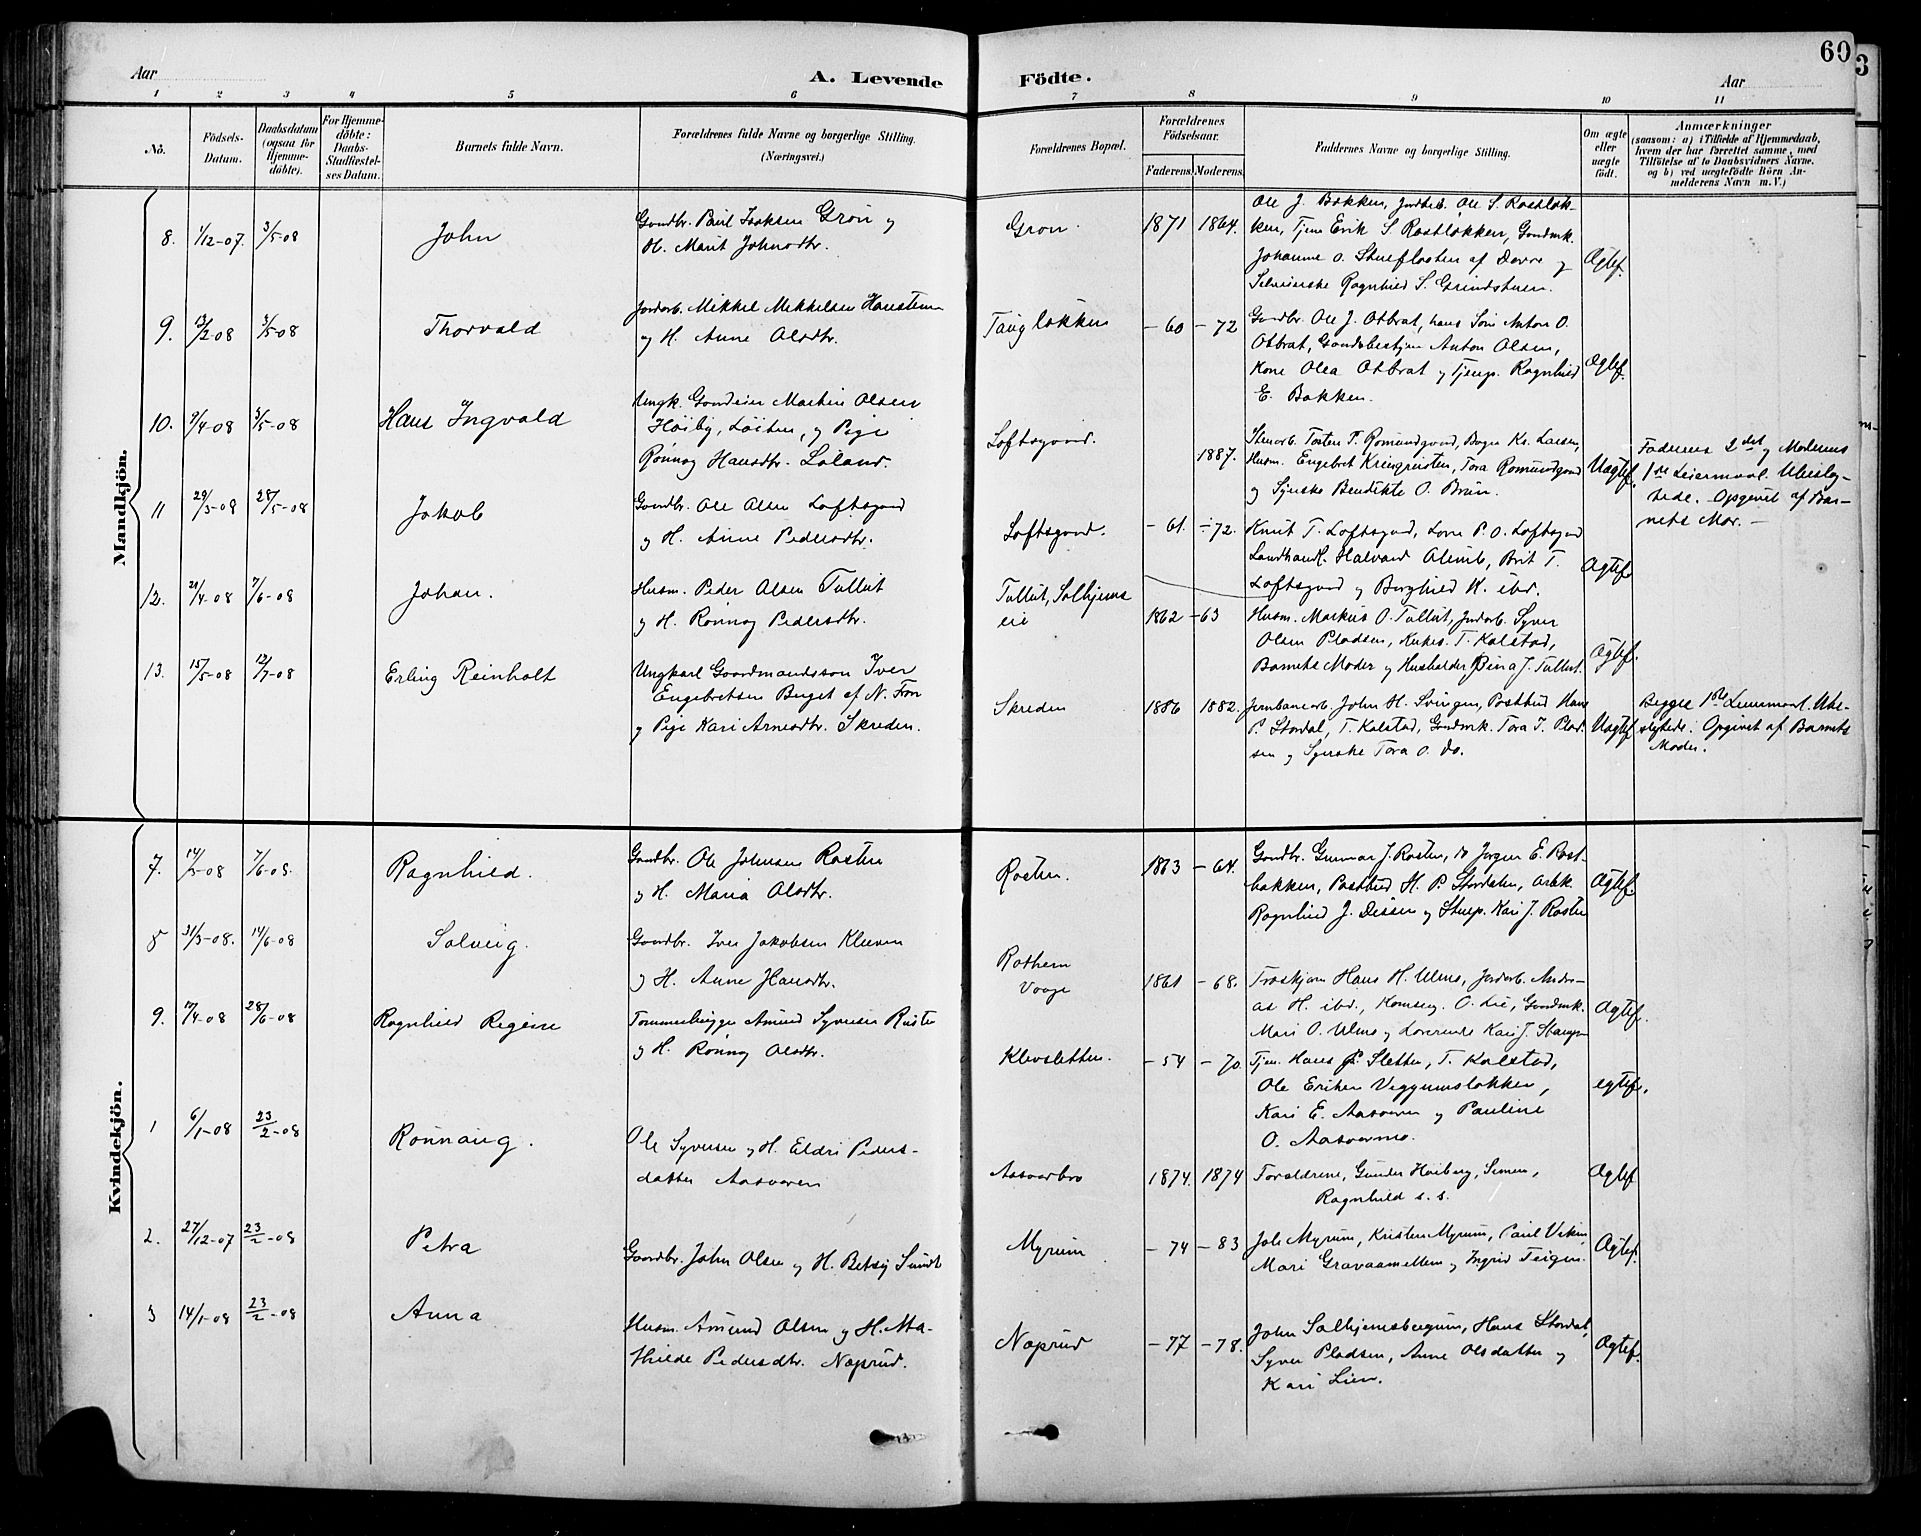 60
3
Aar
A. Levende
Födte.
Aar
1 2 3 4 5 6 7 8 9 10 11
No.
Födsels-
Datum.
Daabsdatum
(ogsaa for
Hjemme-
döbte).
For Hjemme-
döbte:
Daabs-
Stadfæstel-
ses Datum.
Barnets fulde Navn.
Forældrenes fulde Navne og borgerlige Stilling.
(Næringsvei.)
Forældrenes Bopæl.
Forældrenes
Födselsaar.
Faderens. Moderens.
Faddernes Navne og borgerlige Stilling.
Om ægte
eller
uægte
födt.
Anmærkninger
(saasom: a) i Tilfælde af Hjemmedaab,
hvem der har forrettet samme, med
Tilföielse af to Daabsvidners Navne,
og b) ved uægtefödte Börn An-
melderens Navn m. V.)
Mandkjön.
8. 1/12-07. 3/5-08 John
Gaardbr. Paul Isaksen Grøn og
H. Marit Johnsdtr.
Grøn. 1871 1864.
Ole J. Bakken, Jordbr. Ole S. Rostløk-
ken, Tjen. Erik S. Rostløkken, Gaardmk.
Johanne O. Stuefloten af Dovre og
Ragnhild S. Grindstuen.
Ægtef.
9. 13/2-08 3/5-08 Thorvald
Jordarb. Mikkel Mikkelsen Haustein
og H. Anne Olsdtr.
Taugløkken -60 -72
Gaardbr. Ole J. Otbrat, hans Søn Anton O.
Otbrat, Gaardsbestyr. Anton Olsen,
Kone Olea Otbrat og Tjenp. Ragnhild
E. Bakken.
Ægtef.
10. 9/4-08 3/5-08 Hans Ingvald
Ungk. Gaardeier Martin Olsen
Høiby, Løiten, og Pige
Rønnog Hansdtr. Løland.
Loftsgaard. 1887.
Stenarb. Tosten T. Romundgaard, Bager Kr. Larsen,
Husm. Engebret Kringsristen, Tora Romundgaard
og Syerske Bendikte O. Bruun.
Uægtef.
Faderens 2det og Moderens
1ste Leiermaal. Ubeslæg-
tede. Opgivet af Bar-
nets Mor. -
11 29/3-08 28/5-08 Jakob
Gaardbr. Ole Olsen Loftsgaard
og H. Anne Pedersdtr.
Loftsgaard. -61. -72.
Knut T. Loftsgaard, Lars P. O. Loftsgaard
Landhandl. Halvard Olimb, Brit T.
Loftsgaard og Borghild K. ibd.
Ægtef.
12. 21/4-08 7/6-08 Johan.
Husm. Peder Olsen Tullut
og H. Rønnog Pedersdtr.
Tullut, Solhjems
eie 1862 -63
Husm. Markus O. Tullut, Jordarb. Syver
Olsen Pladsen, Kirkes. T. Kalstad,
Barnets Moder og Husholder Gina J. Tullut.
Ægtef.
13. 15/5-08 12/7-08 Erling Reinholt
Ungkarl Gaardmandssøn Iver
Engebretsen Byget af N. Fron
og Pige Kari Arnesdtr. Skreden.
Skreden 1886 1882.
Jernbanearb. John H. Svingen, Postbud Hans
P. Stordal, T. Kalstad, Gaardmk. Tora I. Plad-
sen og Syerske Tora O. do.
Uægtef.
Begges 1ste Leiermaal. Ube-
slægtede. Opgivet af Barnets
Moder.
Kvindekjön.
7. 14/5-08 7/6-08. Ragnhild.
Gaardbr. Ole Johnsen Rosten
og H. Maria Olsdtr.
Rosten. 1863 -64.
Gaardbr. Gunnar J. Rosten, do Jørgen E. Rost-
bakken, Postbud H. P. Stordalen, Arbk.
Ragnhild J. Dissen og Stuep. Kari J. Rosten
Ægtef.
8 31/3-08. 14/6-08 Solveig.
Gaardbr. Iver Jakobsen Kleiven
og H. Anne Hansdtr.
Rothem
Vaage 1861 -68.
Hans H. Ulmo, Jordarb. Andre-
as H. ibd., O. Lie, Gaardmk.
Mari O. Ulmo og Lærerinde Kari J. Stampen
Ægtef.
9. 17/4-08 28/6-08 Ragnhild Regine
Tømmerhugger Amund Syversen Rusten
og H. Rønnog Olsdtr.
Klevsletten. -54 -70.
Tjen. Hans P. Sletten, T. Kalstad,
Ole Eriksen Veggumsløkken,
Kari E. Aasoren og Pauline
O. Aasoarmo.
Ægtef.
1 6/1-08 23/2-08 Rønnaug.
Ole Syversen og H. Eldri Peders-
datter Aasoaren
Aasoarbro 1874. 1874
Forældrene, Gunder Høiberg, Simen,
Ragnhild s. s.
Ægtef
2. 27/12-07 23/2-08 Petra
Gaardbr. John Olsen og H. Betsy Sundt
Myrum -74 -83
Joh. Myrum, Kristen Myrum, Paul Viken
Mari Gravaamellem og Ingrid Teigen.
Ægtef.
3 14/1-08 23/2-08 Anna
Husm. Amund Olsen og H. Ma-
thilde Pedersdtr. Næprud.
Næprud -77 -78.
John Solhjemsbergum, Hans Stordal,
Syver Pladsen, Anne Olsdatter og
Kari Lien.
Ægtef.